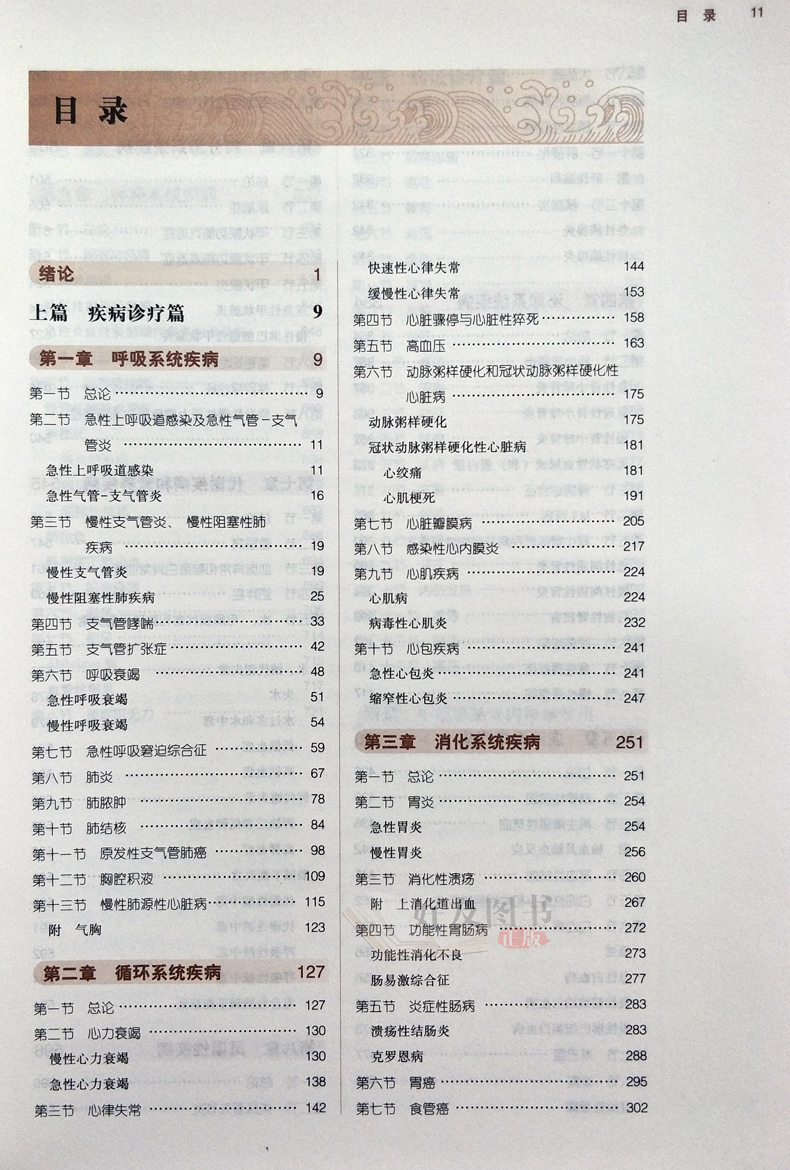 目 录 11
目 录
绪论 1
上篇 疾病诊疗篇 9
第一章 呼吸系统疾病 9
第一节 总论 9
第二节 急性上呼吸道感染及急性气管-支气
管炎 11
急性上呼吸道感染 11
急性气管-支气管炎 16
第三节 慢性支气管炎、慢性阻塞性肺
疾病 19
慢性支气管炎 19
慢性阻塞性肺疾病 25
第四节 支气管哮喘 33
第五节 支气管扩张症 42
第六节 呼吸衰竭 48
急性呼吸衰竭 51
慢性呼吸衰竭 54
第七节 急性呼吸窘迫综合征 59
第八节 肺炎 67
第九节 肺脓肿 78
第十节 肺结核 84
第十一节 原发性支气管肺癌 98
第十二节 胸腔积液 109
第十三节 慢性肺源性心脏病 115
附 气胸 123
第二章 循环系统疾病 127
第一节 总论 127
第二节 心力衰竭 130
慢性心力衰竭 130
急性心力衰竭 138
第三节 心律失常 142
快速性心律失常 144
缓慢性心律失常 153
第四节 心脏骤停与心脏性猝死 158
第五节 高血压 163
第六节 动脉粥样硬化和冠状动脉粥样硬化性
心脏病 175
动脉粥样硬化 175
冠状动脉粥样硬化性心脏病 181
心绞痛 181
心肌梗死 191
第七节 心脏瓣膜病 205
第八节 感染性心内膜炎 217
第九节 心肌疾病 224
心肌病 224
病毒性心肌炎 232
第十节 心包疾病 241
急性心包炎 241
缩窄性心包炎 247
第三章 消化系统疾病 251
第一节 总论 251
第二节 胃炎 254
急性胃炎 254
慢性胃炎 256
第三节 消化性溃疡 260
附 上消化道出血 267
好友图书
正版
第四节 功能性胃肠病 272
功能性消化不良 273
肠易激综合征 277
第五节 炎症性肠病 283
溃疡性结肠炎 283
克罗恩病 288
第六节 胃癌 295
第七节 食管癌 302